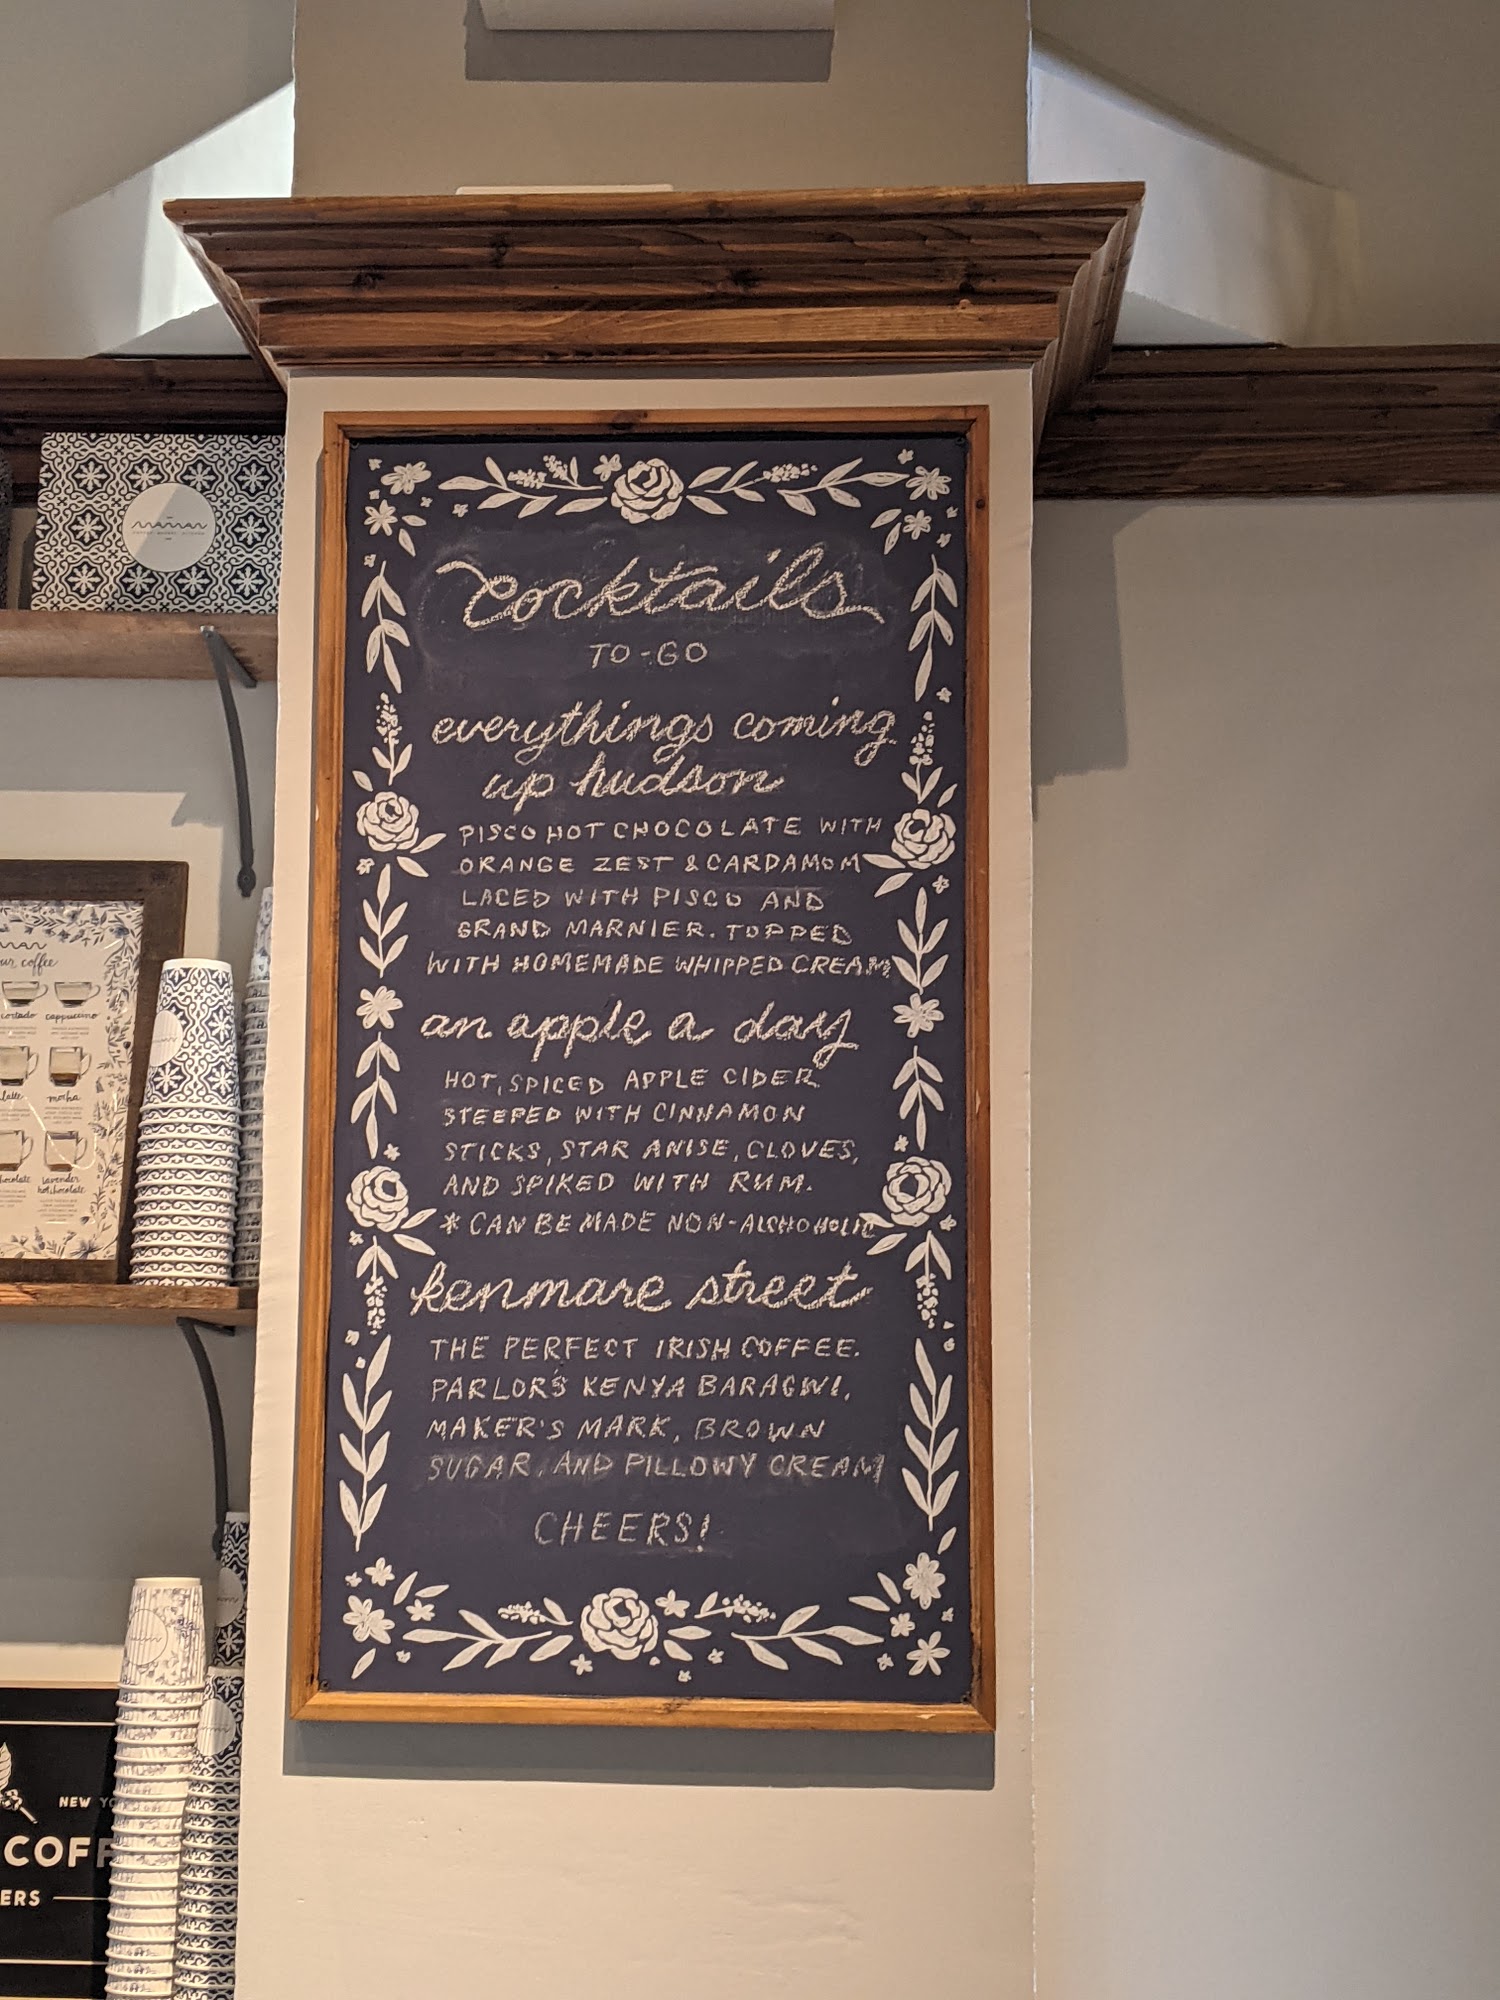 cocktails
TO-GO
everythings coming
up hudson
PISCO HOT CHOCOLATE WITH
ORANGE ZEST & CARDAMOM
LACED WITH PISCO AND
GRAND MARNIER. TOPPED
WITH HOMEMADE WHIPPED CREAM
an apple a day
HOT, SPICED APPLE CIDER
STEEPED WITH CINNAMON
STICKS, STAR ANISE, CLOVES,
AND SPIKED WITH RUM.
* CAN BE MADE NON-ALCHOHOLIC
kenmare street
THE PERFECT IRISH COFFEE.
PARLOR'S KENYA BARAGWI,
MAKER'S MARK, BROWN
SUGAR, AND PILLOWY CREAM
CHEERS!
maman
our coffee
cortado cappuccino
latte mocha
lavender
hot chocolate
NEW YO
COFF
ERS